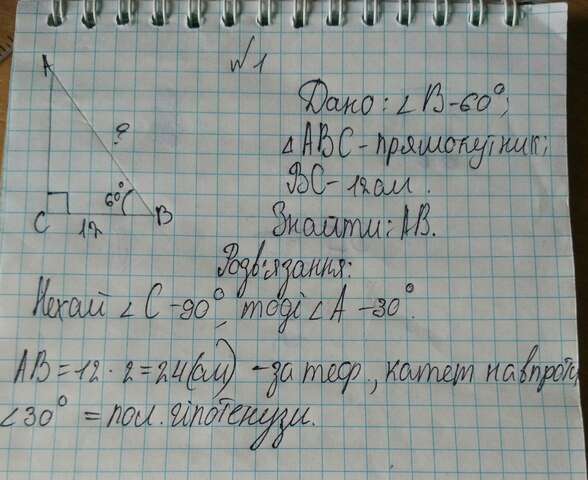 №1
A
?
60°
C
12
B
Дано: ∠B-60°;
∠ABC-прямокутник;
BC-12см.
Знайти: AB.
Розв'язання:
Нехай ∠C-90°, тоді ∠A-30°.
AB=12·2=24(см) -за теор., катет навпроти
∠30° = пол. гіпотенузи.